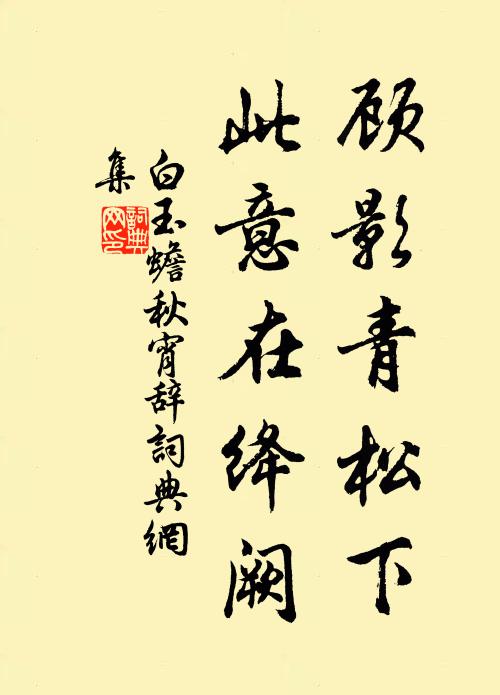 顾影青松下
此意在绛阙
白玉蟾秋宵辞詞典網
集
詞典网印